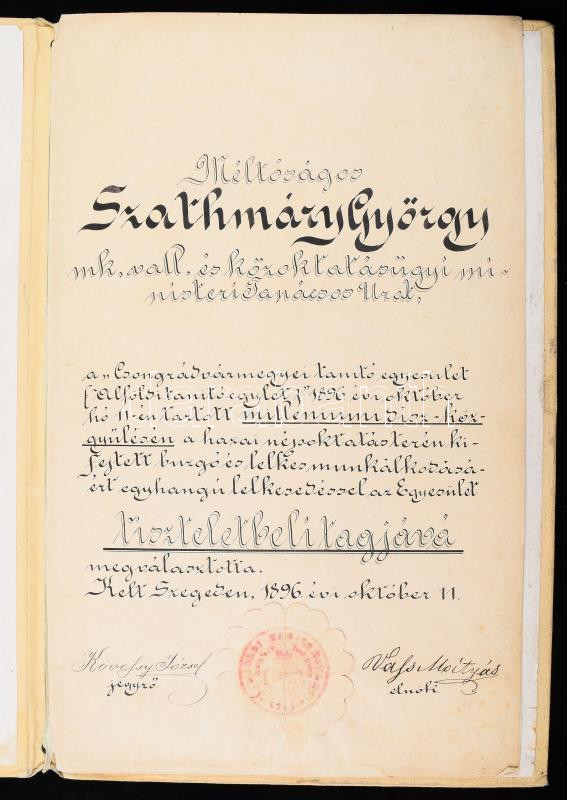 Méltóságos
Szathmáry György
mk. vall. és közoktatásügyi mi-
nisteri Tanácsos Urat,
a „Csongrádvármegyei tanító egyesület
("Alföldi tanító egylet")" 1896 évi október
hó 11-én tartott milleniumi disz-köz-
gyülésén a hazai népoktatás terén ki-
fejtett buzgó és lelkes munkálkodásá-
ért egyhangú lelkesedéssel az Egyesület
tiszteletbeli tagjává
megválasztotta.
Kelt Szegeden, 1896 évi október 11.
Kövessy József
jegyző
Vass Mátyás
elnök